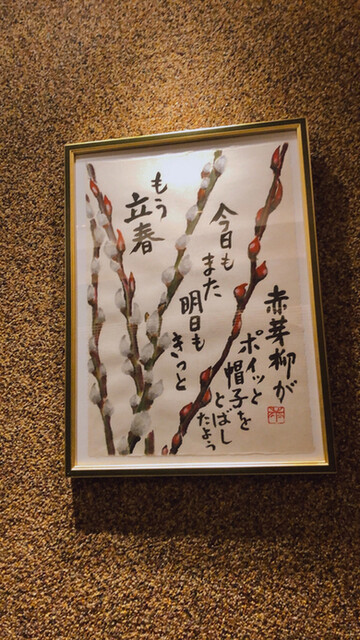 赤芽柳が
ポイッと
帽子を
とばし
たよう
今日も
また
明日も
きっと
もう
立春